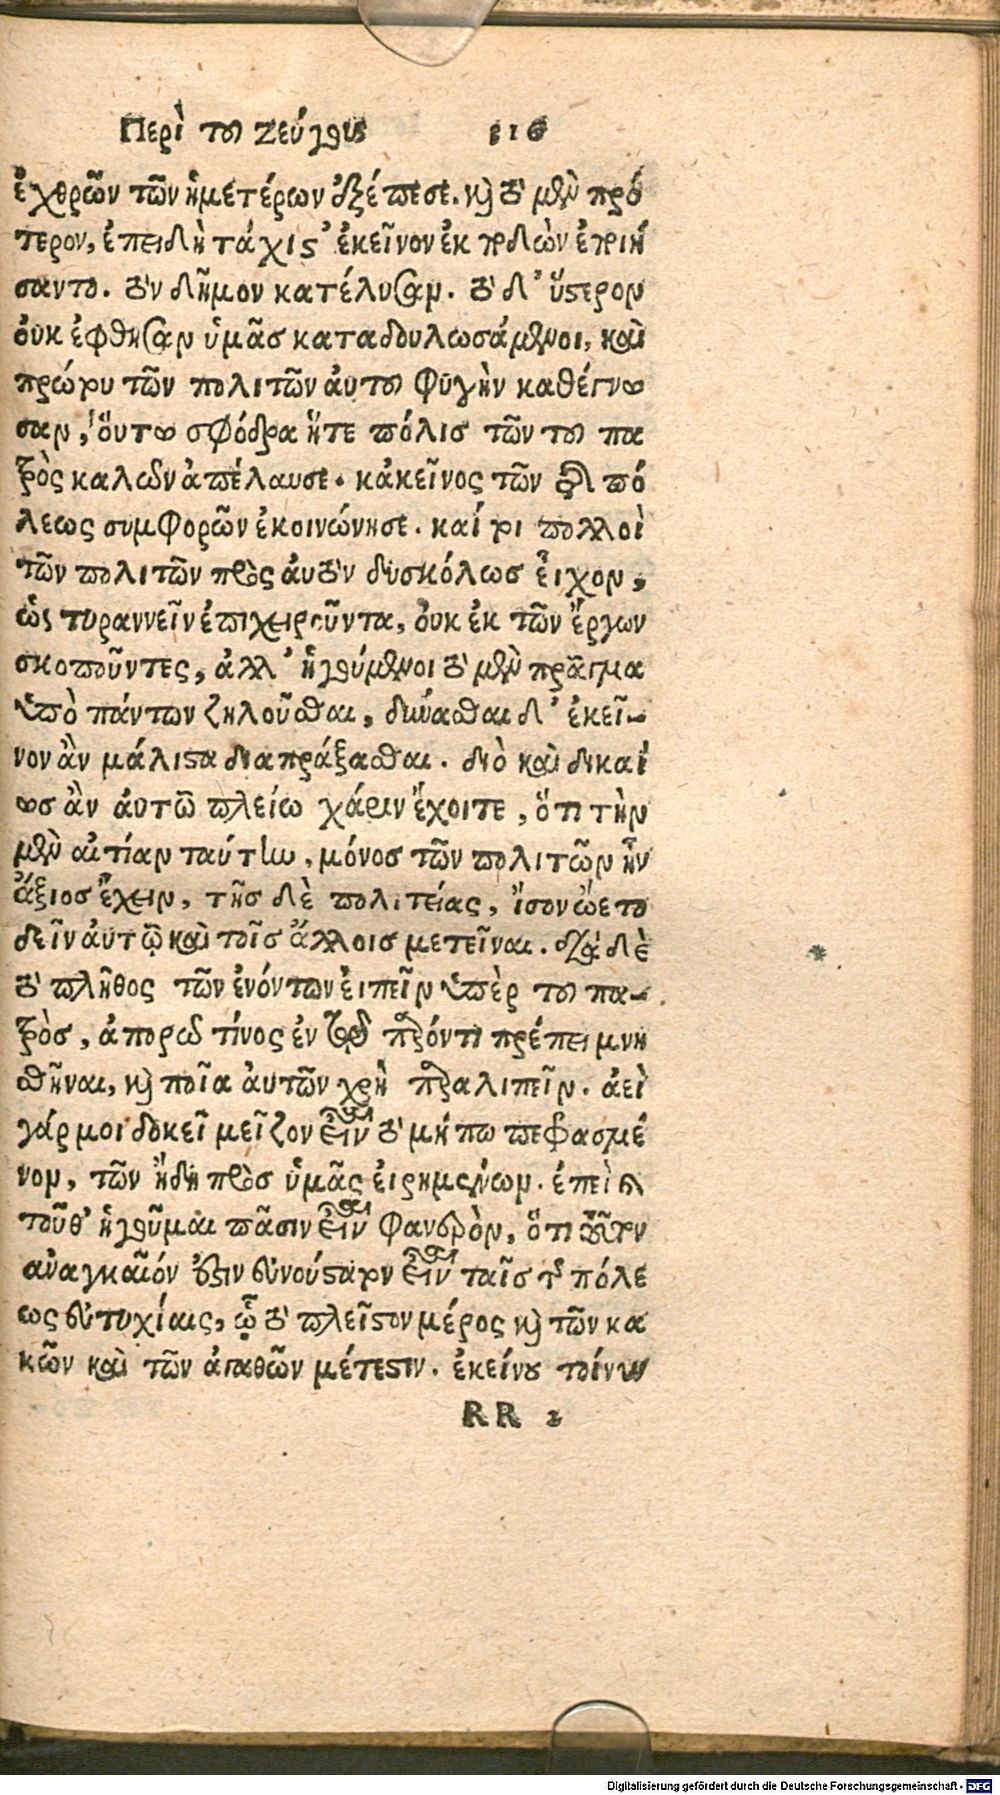 Περὶ τοῦ Ζεύγους 116
ἐχθρῶν τῶν ἡμετέρων ἐξέπεσε. καὶ τὸ μὲν πρό
τερον, ἐπειδὴ τάχιστ' ἐκεῖνον ἐκποδὼν ἐποιή
σαντο. τὸν δῆμον κατέλυσαν. τὸ δ' ὕστερον
οὐκ ἔφθησαν ὑμᾶς καταδουλωσάμενοι, καὶ
πρώτου τῶν πολιτῶν αὐτοῦ φυγὴν κατέγνω
σαν, οὕτω σφόδρα ἥτε πόλις τῶν τοῦ πα
τρὸς καλῶν ἀπέλαυσε. κἀκεῖνος τῶν τῆς πό
λεως συμφορῶν ἐκοινώνησε. καίτοι πολλοὶ
τῶν πολιτῶν πρὸς αὐτὸν δυσκόλως εἶχον,
ὡς τυραννεῖν ἐπιχειροῦντα, οὐκ ἐκ τῶν ἔργων
σκοποῦντες, ἀλλ' ἡγούμενοι τὸ μὲν πρᾶγμα
ὑπὸ πάντων ζηλοῦσθαι, δύνασθαι δ' ἐκεῖ-
νον ἂν μάλιστα διαπράξασθαι. διὸ καὶ δικαί
ως ἂν αὐτῷ πλείω χάριν ἔχοιτε, ὅτι τὴν
μὲν αἰτίαν ταύτην, μόνος τῶν πολιτῶν ἦν
ἄξιος ἔχειν, τῆς δὲ πολιτείας, ἴσον ᾤετο
δεῖν αὐτῷ καὶ τοῖς ἄλλοις μετεῖναι. διὰ δὲ
τὸ πλῆθος τῶν ἐνόντων εἰπεῖν ὑπὲρ τοῦ πα-
τρὸς, ἀπορῶ τίνος ἐν τῷ παρόντι πρέπει μνη
σθῆναι, καὶ ποῖα αὐτῶν χρὴ παραλιπεῖν. ἀεὶ
γάρ μοι δοκεῖ μεῖζον εἶναι τὸ μή πω πεφασμέ
νον, τῶν ἤδη πρὸς ὑμᾶς εἰρημένων. ἐπεὶ καὶ
τοῦθ' ἡγοῦμαι πᾶσιν εἶναι φανερὸν, ὅτι τοῦτον
ἀναγκαῖόν ἐστιν εὐνούστατον εἶναι ταῖς τῆς πόλε
ως εὐτυχίαις, ᾧ τὸ πλεῖστον μέρος καὶ τῶν κα
κῶν καὶ τῶν ἀγαθῶν μέτεστιν. ἐκείνου τοίνυν
RR 2
Digitalisierung gefördert durch die Deutsche Forschungsgemeinschaft - DFG